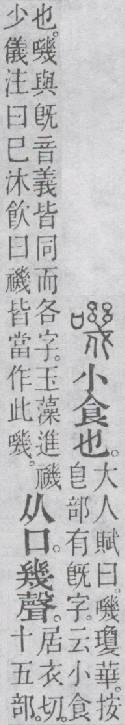 嘰小食也。大人賦曰。嘰瓊華。按皀部有旣字。云小食
也。嘰與旣音義皆同而各字。玉藻進禨少儀注曰已沐飲曰禨皆當作此嘰。从口。幾聲。居衣切。十五部。